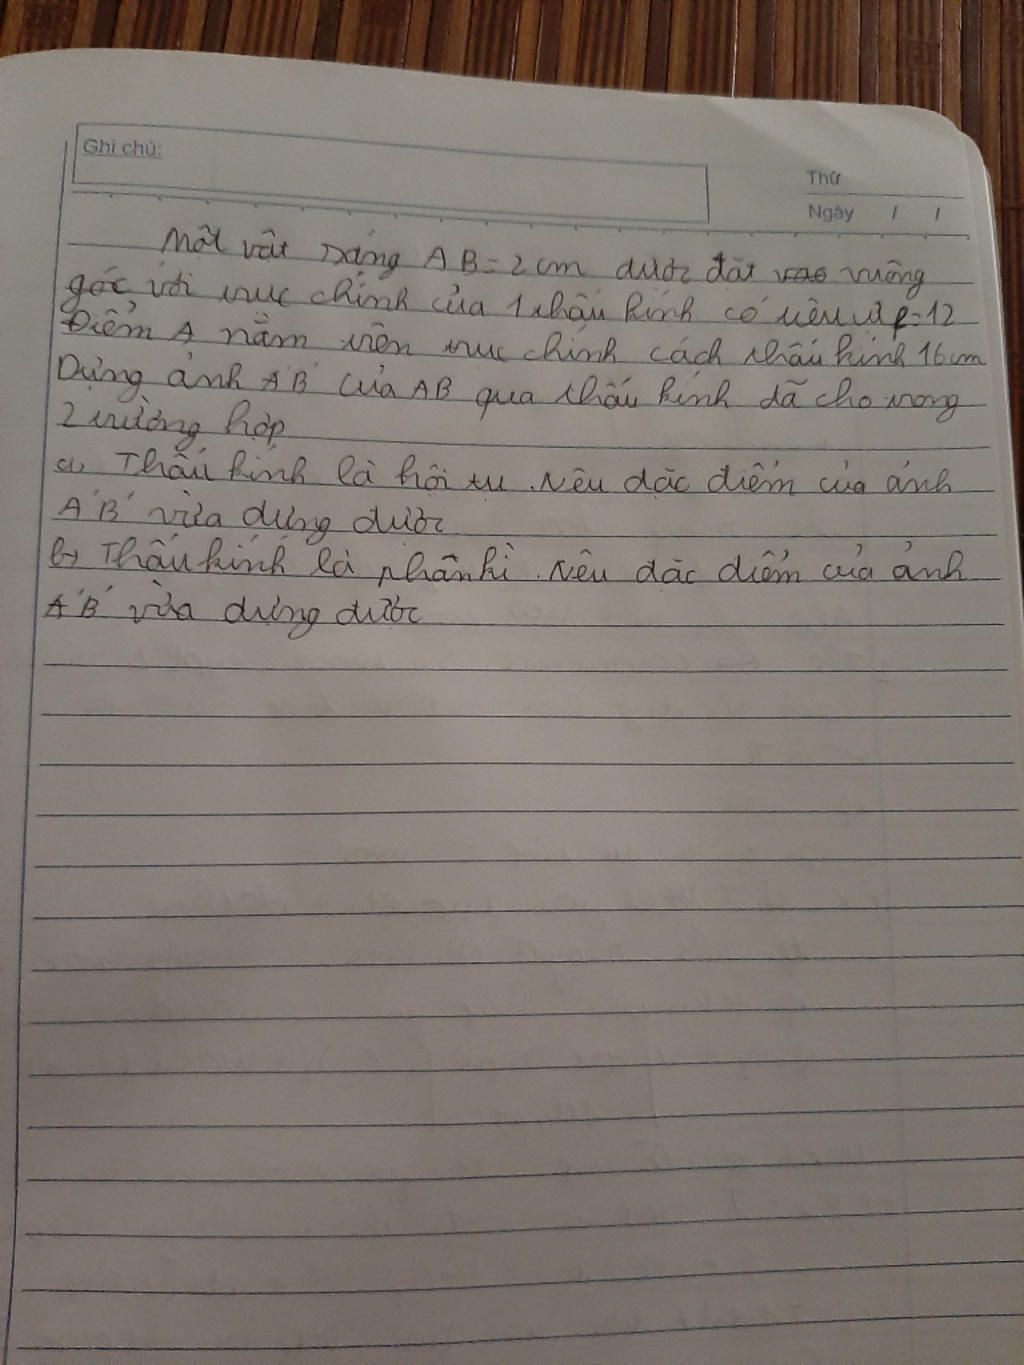 Ghi chú:
Thứ
Ngày / /
Một vật sáng AB=2cm được đặt vào vuông
góc với trục chính của 1 thấu kính có tiêu cự f=12
Điểm A nằm trên trục chính cách thấu kính 16cm
Dựng ảnh A'B' của AB qua thấu kính đã cho trong
2 trường hợp
a, Thấu kính là hội tụ. Nêu đặc điểm của ảnh
A'B' vừa dựng được
b, Thấu kính là phân kì. Nêu đặc điểm của ảnh
A'B' vừa dựng được